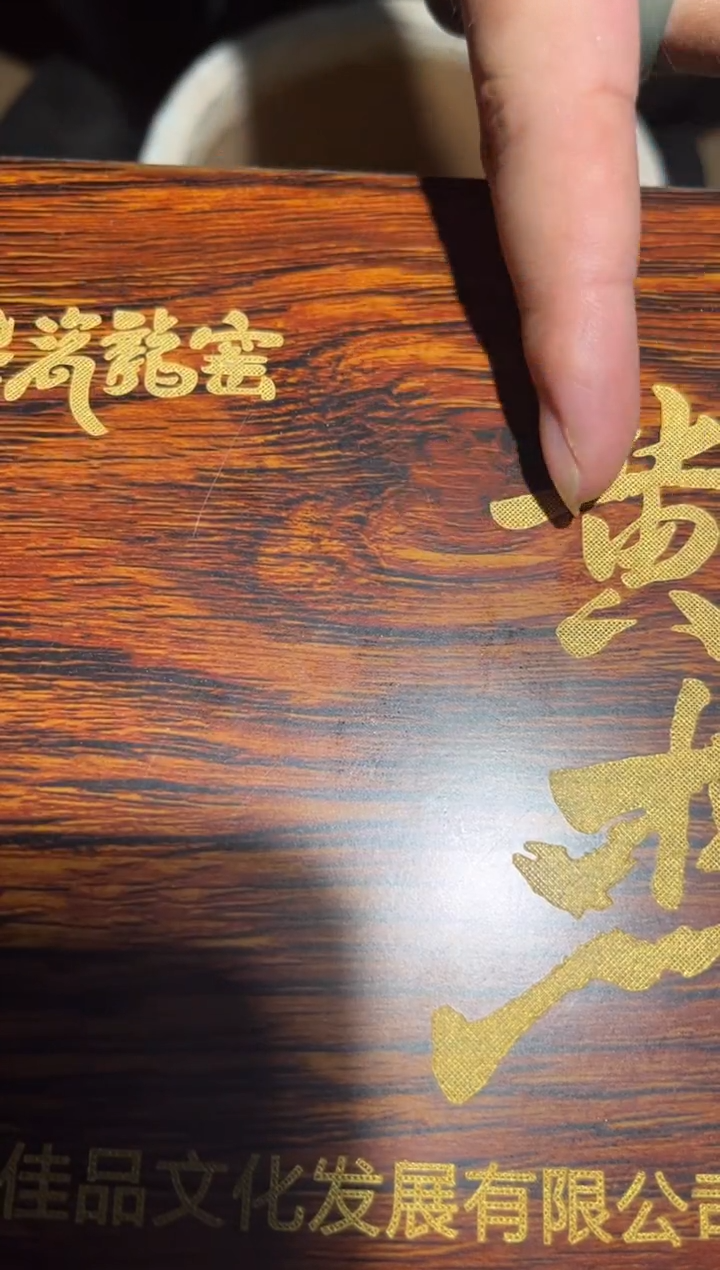 瓷龍窑
黄
佳品文化发展有限公司